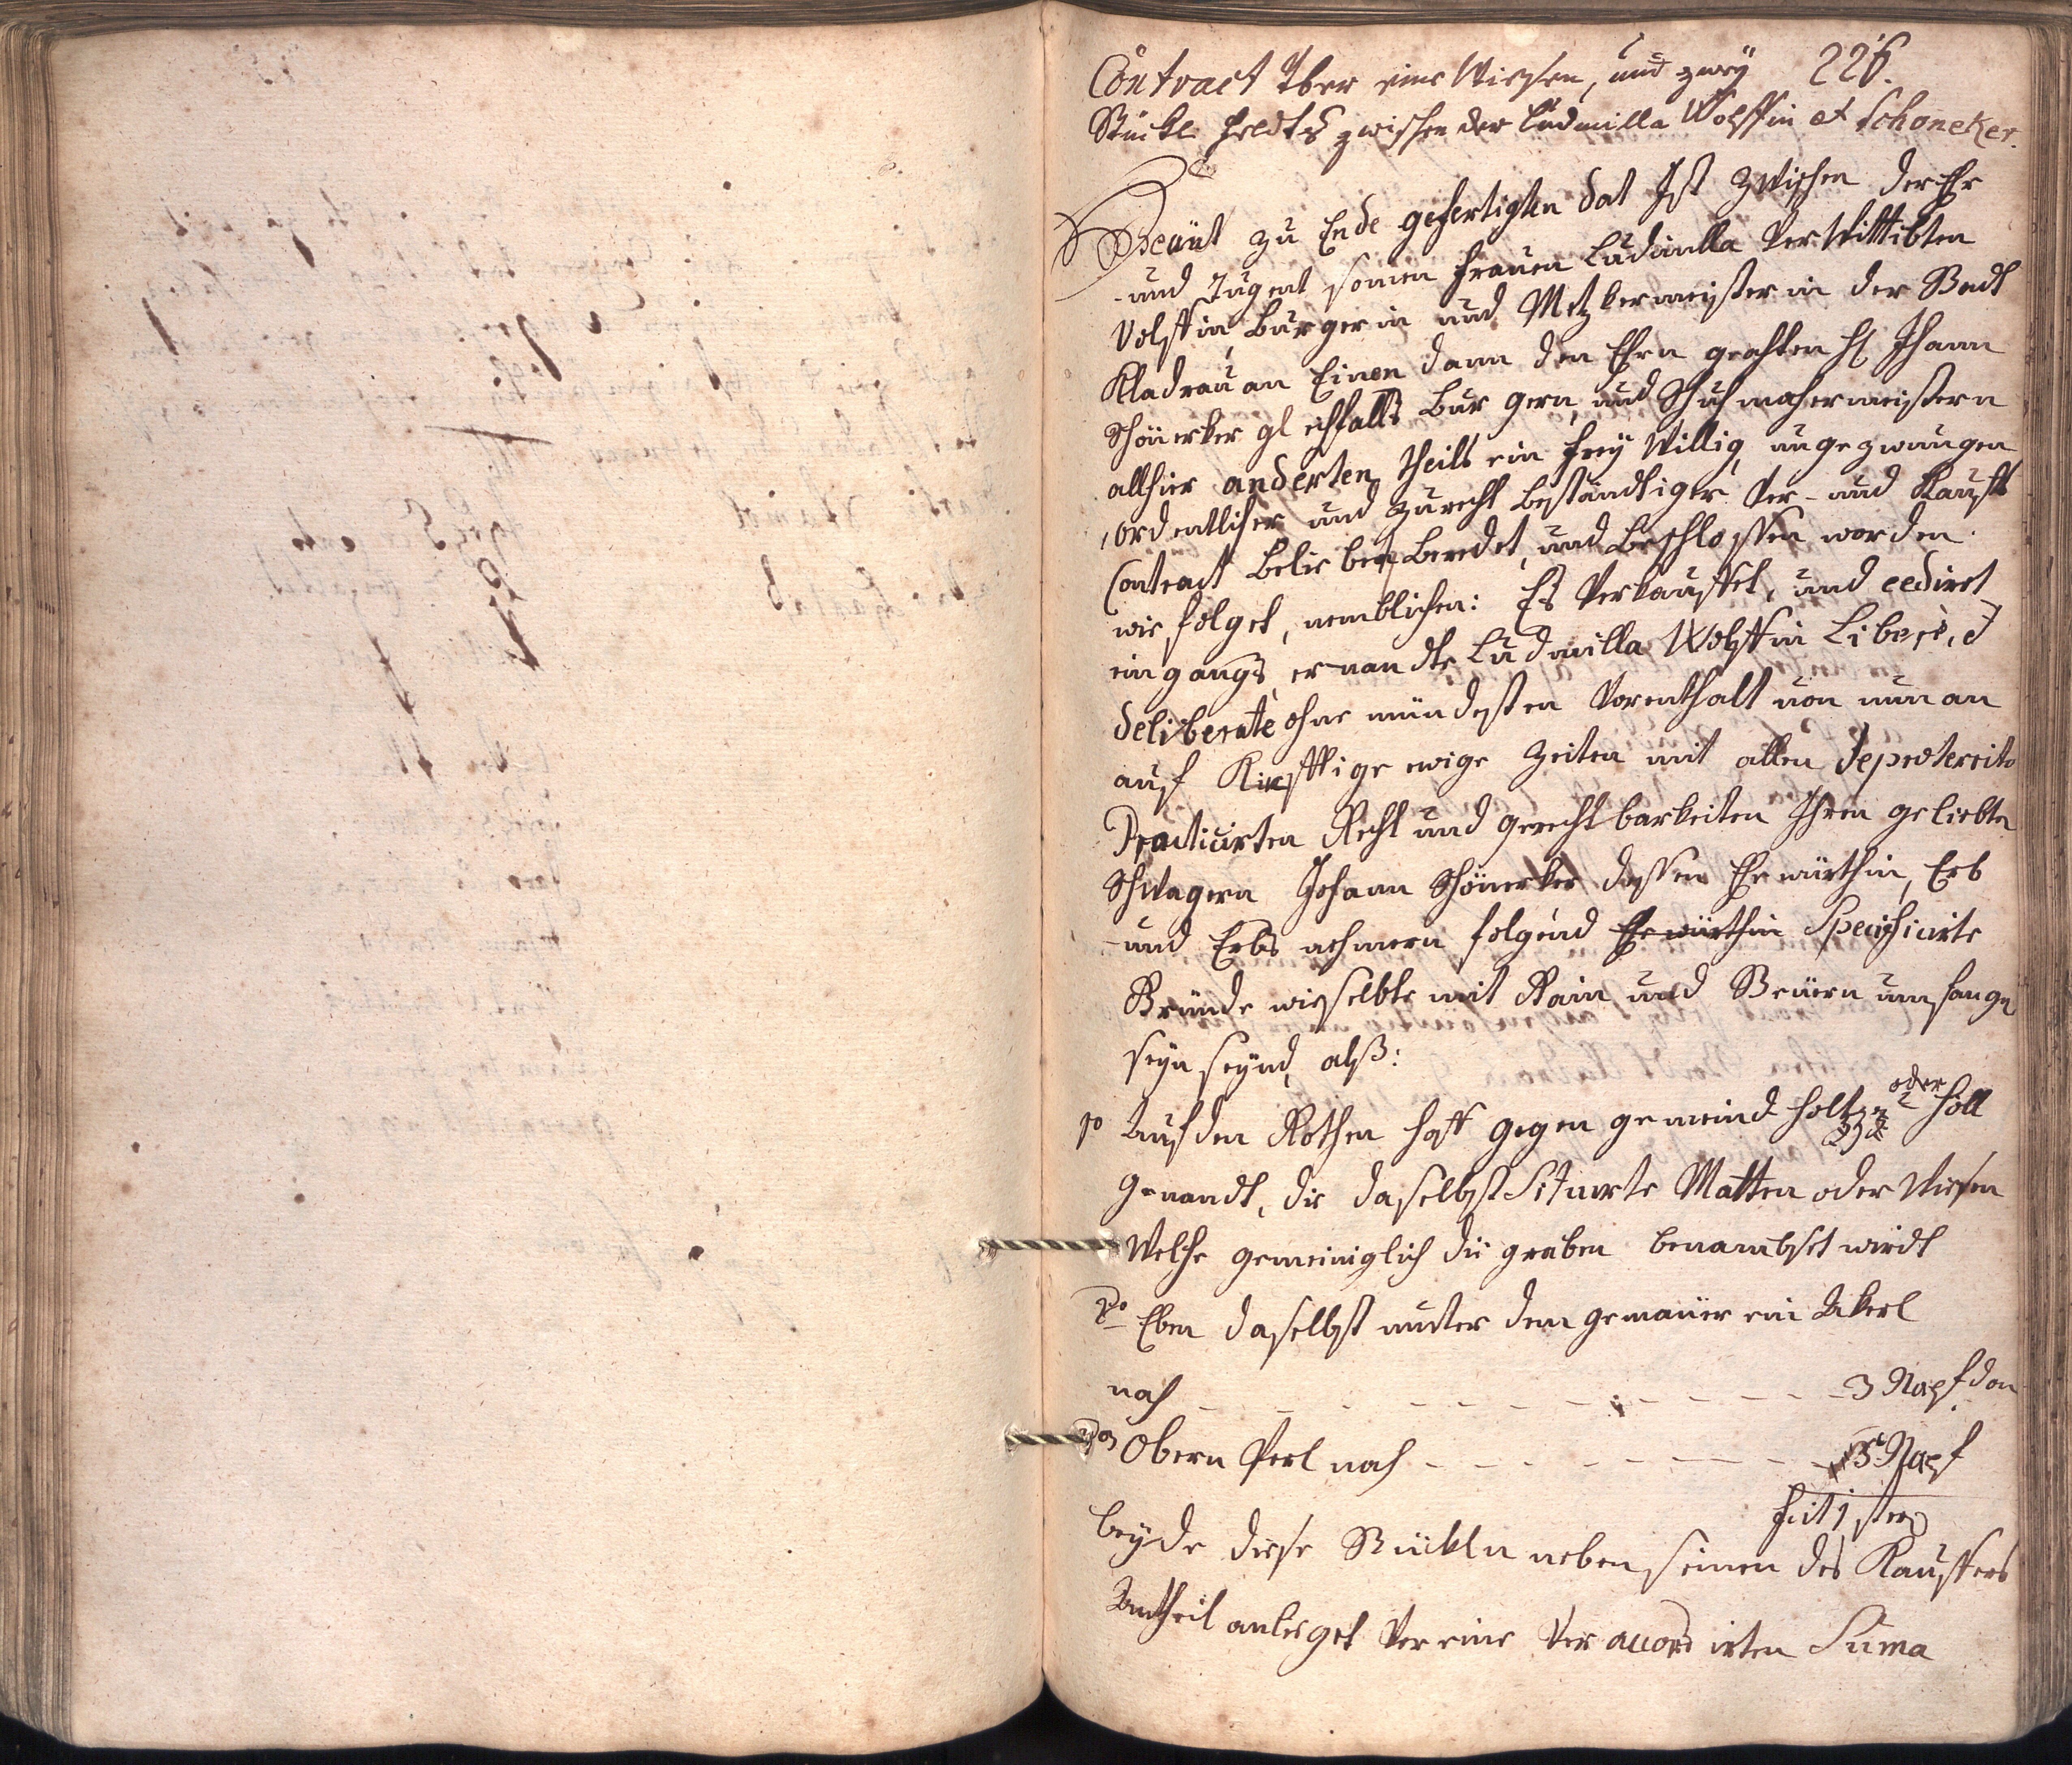 Contract Über eine Wiesen, und zwey 226.
Stückl Feldts zwischen der Ludmilla Wolffin et Schoneker.
Heünt zu Ende gefertigten dat Ist zwischen der Ehr
und Tugent samen Frauen Ludmilla Verwittibten
Volffin Burgerin und Metzkermeisterin der Stadt
Kladrau an Einen dann den Ehrn geachten H Jhann
Schönerker gleichfalls Burgern, und Schuhmachermeistern
allhier anderten theils ein frey Willig, ungezwungen
ordentlicher und zurecht beständtiger Ver- und Kauffs
Contract beliebet beredet, und beschlossen worden
wie folget, nemblichen: Es Verkauffet, und cediret
eingangs ernandte Ludmilla Wolffin Liberè, et
deliberatè ohne mündesten Vorenthalt von nun an
auf Künfftige ewige Zeiten mit allen depreterito
Practicirten Recht und gerechtbarkeiten Ihren geliebten
Schwagern Johann Schönerker dessen Ehewürthin, Erb
und Erbs nehmern folgend Ehewürthin Specificirte
Gründe wieselbte mit Rain und Steüern umfangen
seyn seynd, alß:
1o Auf den Rothen Hoff gegen gemeind Holtz oder Höll
genandt, die daselbst Situirte Matten oder Wiesen
Welche gemeiniglich die graben benambset wirdt
2do Eben daselbst unter dem gemauer ein Akerl
nach 3 Napf don
Obern Perl nach 5 Napf
beyde diese Stückln neben seinen des Kauffers
Antheil anlieget Vor eine Veraccordirten Suma